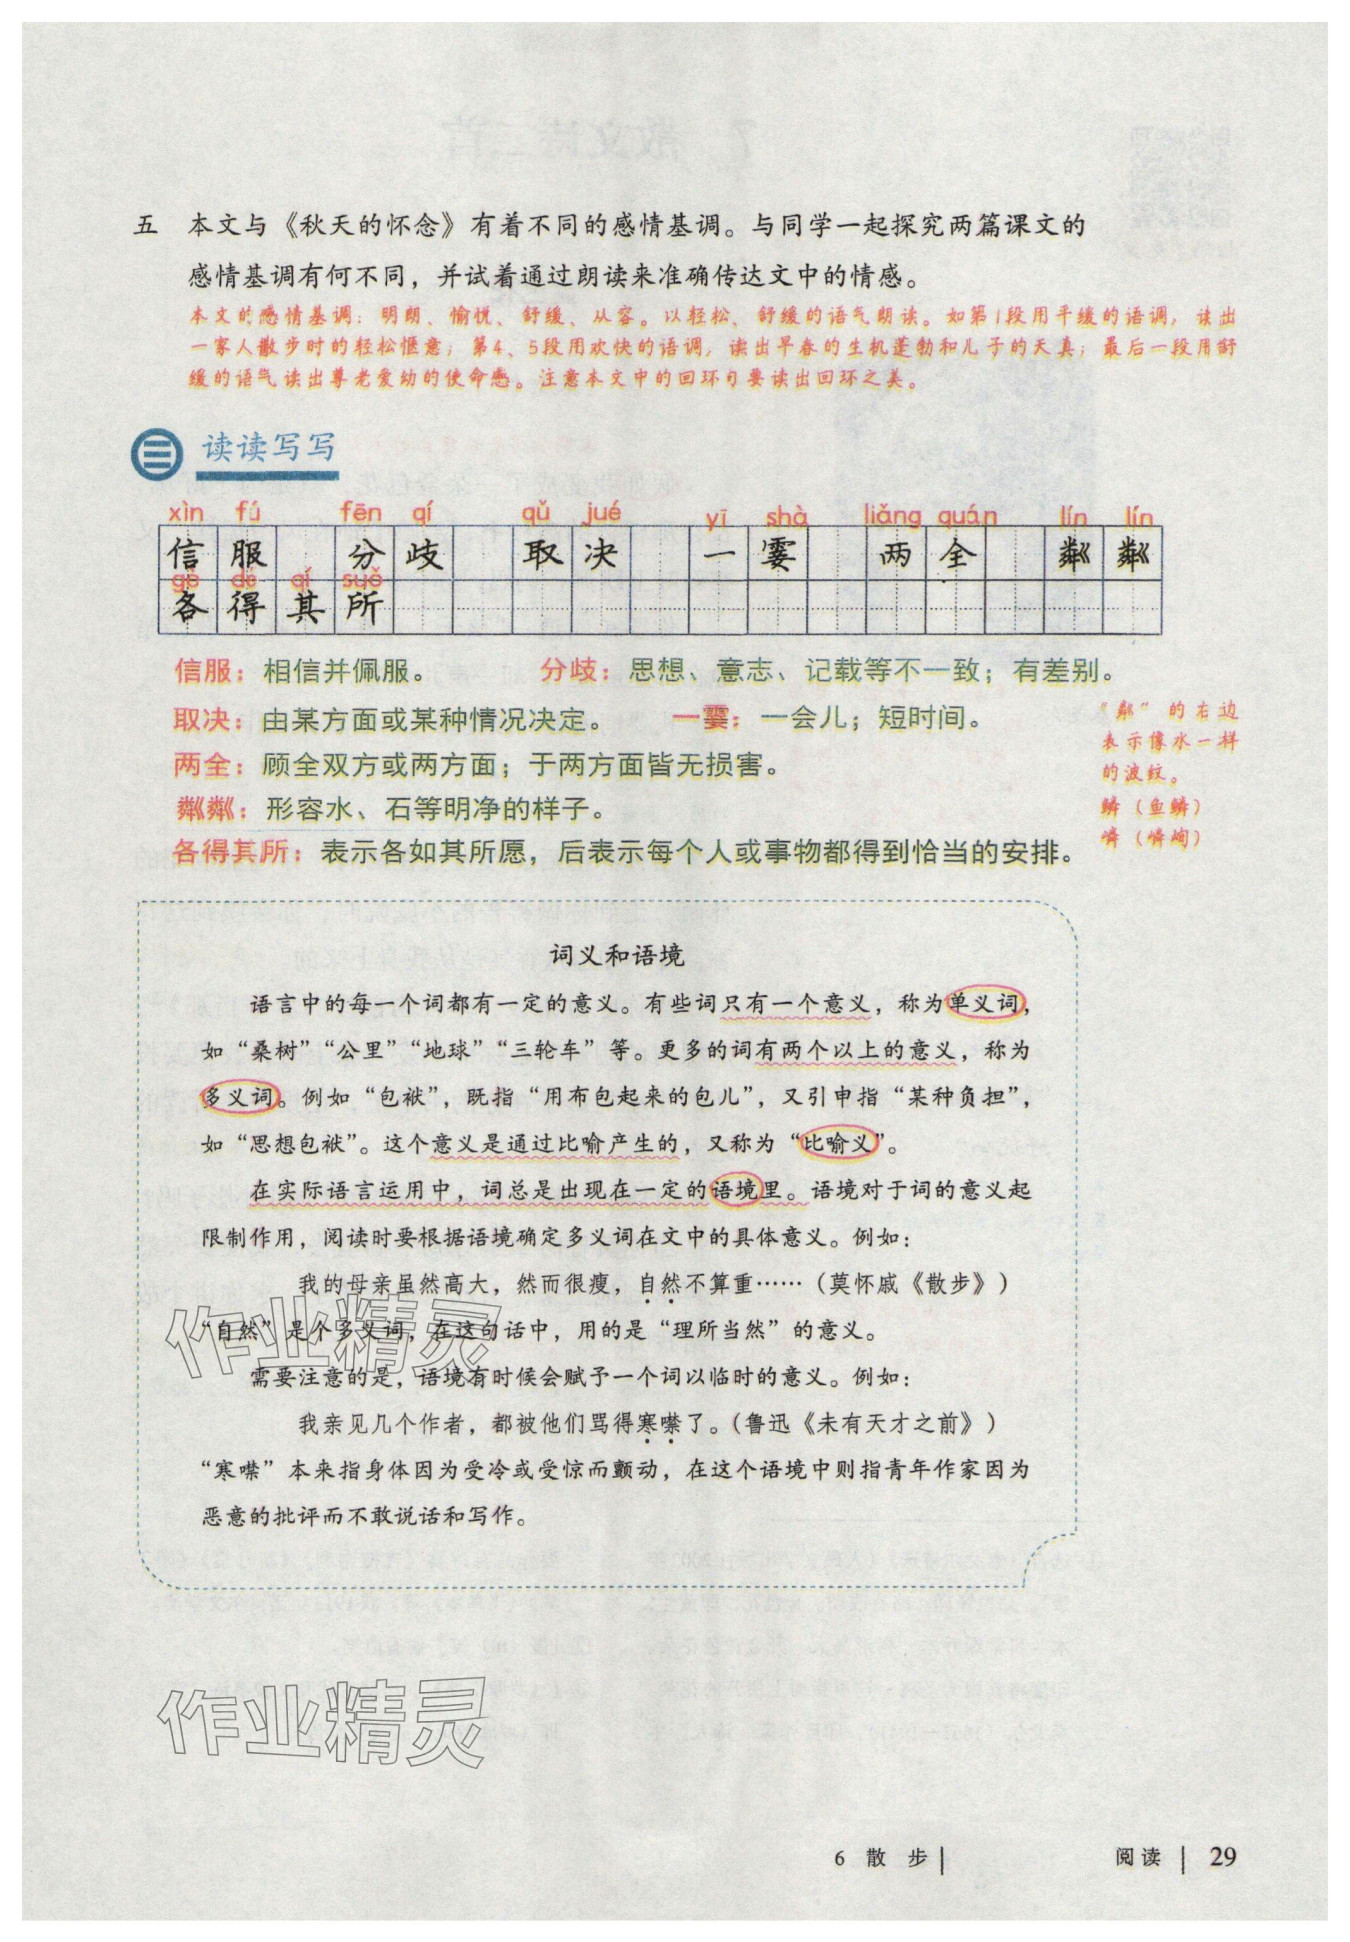 五 本文与《秋天的怀念》有着不同的感情基调。与同学一起探究两篇课文的
感情基调有何不同，并试着通过朗读来准确传达文中的情感。
本文的感情基调：明朗、愉悦、舒缓、从容。以轻松、舒缓的语气朗读。如第1段用平缓的语调，读出
一家人散步时的轻松惬意；第4、5段用欢快的语调，读出早春的生机蓬勃和儿子的天真；最后一段用舒
缓的语气读出尊老爱幼的使命感。注意本文中的回环句要读出回环之美。
读读写写
xìn fú fēn qí qǔ jué yī shà liǎng quán lín lín
信服 分歧 取决 一霎 两全 粼粼
gè dé qí suǒ
各得其所
信服：相信并佩服。 分歧：思想、意志、记载等不一致；有差别。
取决：由某方面或某种情况决定。 一霎：一会儿；短时间。
两全：顾全双方或两方面；于两方面皆无损害。
粼粼：形容水、石等明净的样子。
各得其所：表示各如其所愿，后表示每个人或事物都得到恰当的安排。
“粼”的右边
表示像水一样
的波纹。
鳞（鱼鳞）
嶙（嶙峋）
词义和语境
语言中的每一个词都有一定的意义。有些词只有一个意义，称为单义词，
如“桑树”“公里”“地球”“三轮车”等。更多的词有两个以上的意义，称为
多义词。例如“包袱”，既指“用布包起来的包儿”，又引申指“某种负担”，
如“思想包袱”。这个意义是通过比喻产生的，又称为“比喻义”。
在实际语言运用中，词总是出现在一定的语境里。语境对于词的意义起
限制作用，阅读时要根据语境确定多义词在文中的具体意义。例如：
我的母亲虽然高大，然而很瘦，自然不算重……（莫怀戚《散步》）
“自然”是个多义词，在这句话中，用的是“理所当然”的意义。
需要注意的是，语境有时候会赋予一个词以临时的意义。例如：
我亲见几个作者，都被他们骂得寒噤了。（鲁迅《未有天才之前》）
“寒噤”本来指身体因为受冷或受惊而颤动，在这个语境中则指青年作家因为
恶意的批评而不敢说话和写作。
作业精灵
作业精灵
6 散 步 阅读 29